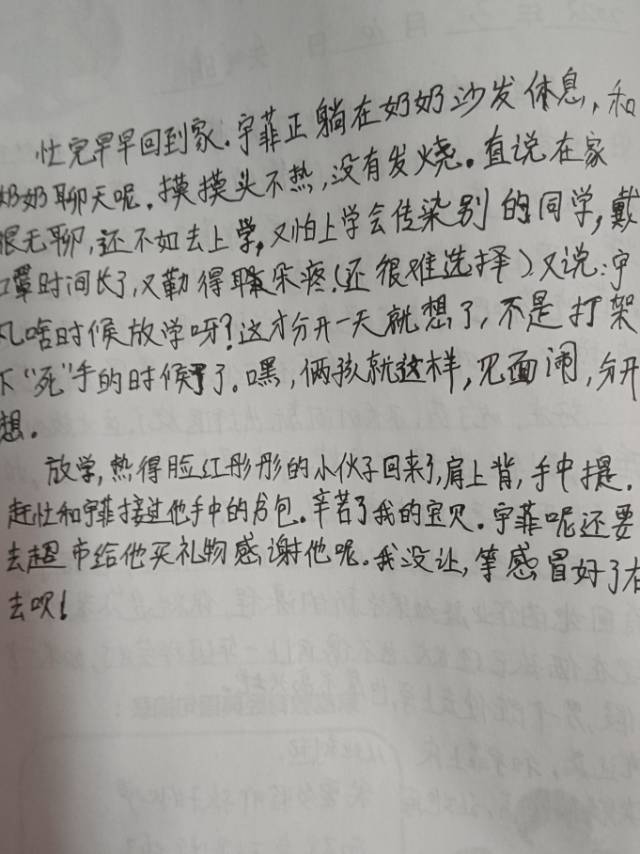 忙完早早回到家。宇菲正躺在奶奶沙发休息，和
奶奶聊天呢。摸摸头不热，没有发烧。直说在家
很无聊，还不如去上学，又怕上学会传染别的同学，戴
口罩时间长了，又勒得耳朵疼。（还很难选择）又说：宇
凡啥时候放学呀？这才分开一天就想了，不是打架
下“死”手的时候了。嘿，俩孩就这样，见面闹，分开
想。
放学，热得脸红彤彤的小伙子回来了，肩上背，手中提。
赶忙和宇菲接过他手中的书包。辛苦了我的宝贝。宇菲呢还要
去超市给他买礼物感谢他呢。我没让，等感冒好了在
去呗！